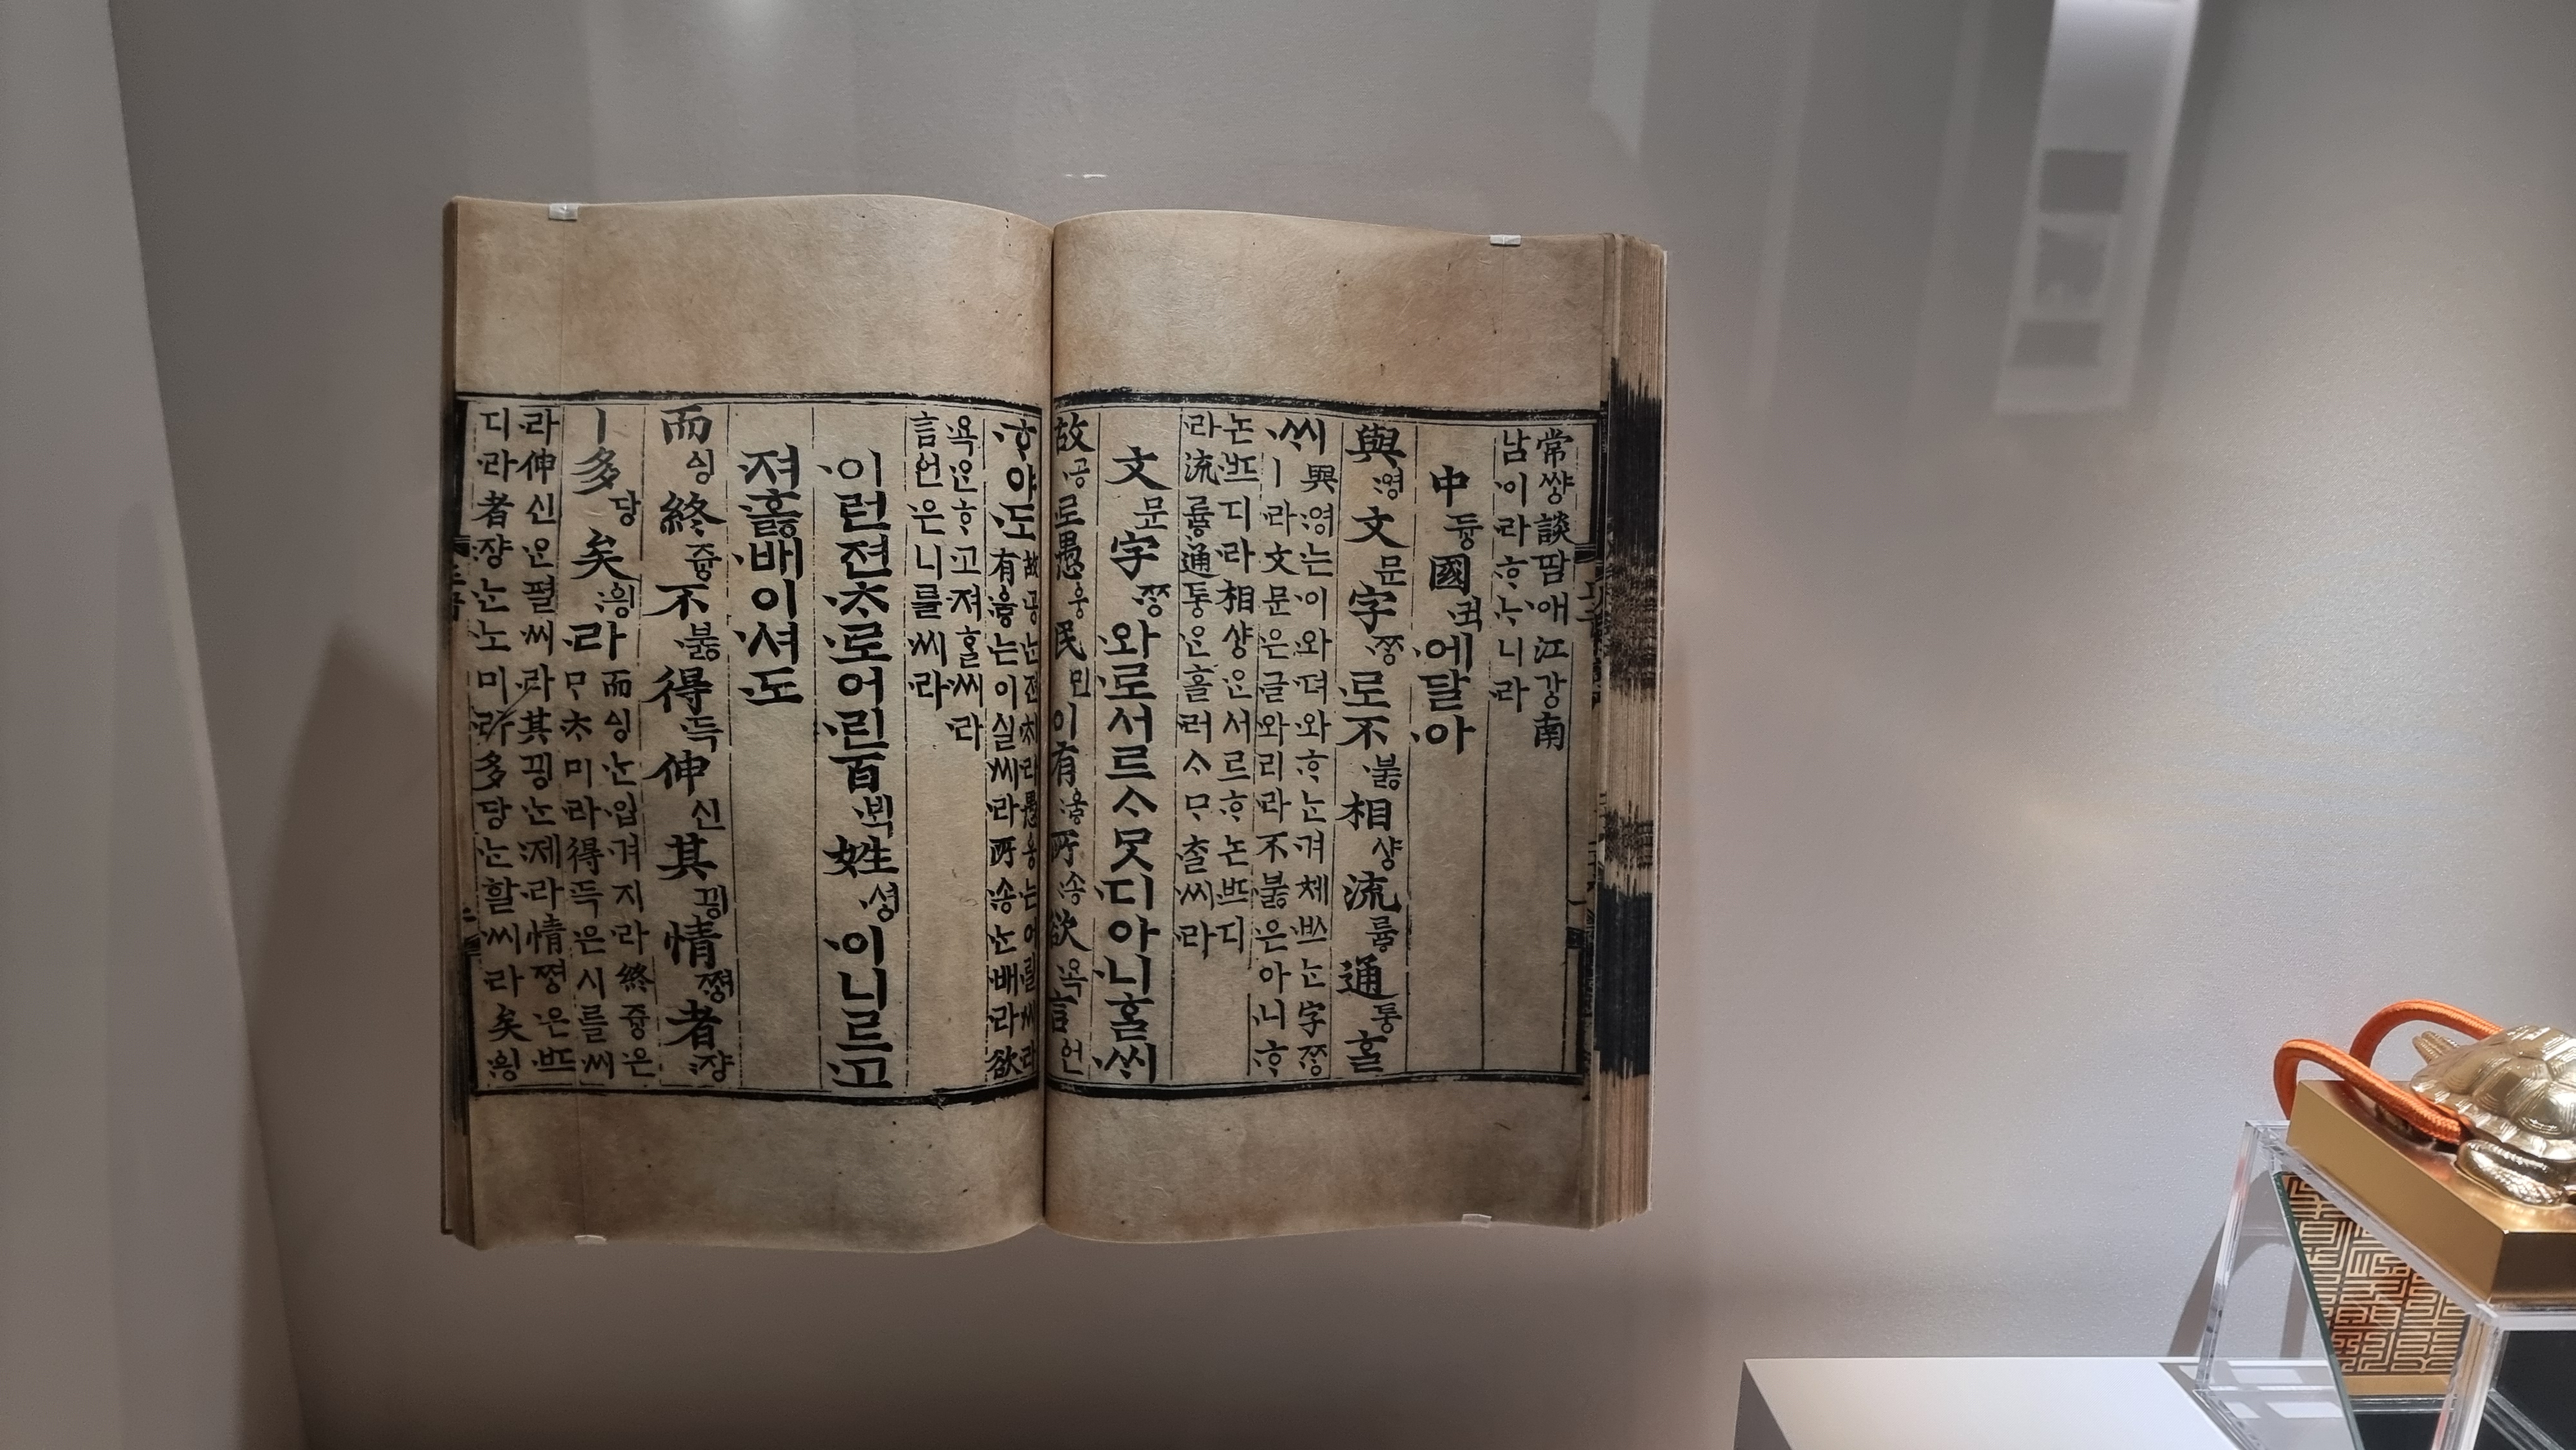 常쌰ᇰ談땀애江가ᇰ南
남이라ᄒᆞᄂᆞ니라
中듀ᇰ國귁에달아
與영文문字ᄍᆞᆼ로不부ᇙ相샤ᇰ流류ᇢ通토ᇰᄒᆞᆯ
ᄊᆡ與영는이와뎌와ᄒᆞᄂᆞᆫ겨체ᄡᅳᄂᆞᆫ字ᄍᆞᆼ
ㅣ라文문은글와리라不부ᇙ은아니ᄒᆞ
논ᄠᅳ디라相샤ᇰᄋᆞᆫ서르ᄒᆞ논ᄠᅳ디
라流류ᇢ通토ᇰᄋᆞᆫ흘러ᄉᆞᄆᆞᄎᆞᆯ씨라
文문字ᄍᆞᆼ와로서르ᄉᆞᄆᆞᆺ디아니ᄒᆞᆯᄊᆡ
故공로愚웅民민이有우ᇢ所송欲욕言언
ᄒᆞ야도故공ᄂᆞᆫ젼ᄎᆡ라愚웅는어릴씨라
有우ᇢ는이실씨라所송ᄂᆞᆫ배라欲
욕ᄋᆞᆫᄒᆞ고져ᄒᆞᆯ씨라
言언은니를씨라
이런젼ᄎᆞ로어린百ᄇᆡᆨ姓셔ᇰ이니르고
져호ᇙ배이셔도
而ᅀᅵᆼ終쥬ᇰ不부ᇙ得득伸신其끵情쪄ᇰ者쟝
ㅣ多당矣ᅌᅴᆼ라而ᅀᅵᆼᄂᆞᆫ입겨지라終쥬ᇰ은
ᄆᆞᄎᆞ미라得득은시를씨
라伸신ᄋᆞᆫ펼씨라其끵ᄂᆞᆫ제라情쪄ᇰ은ᄠᅳ
디라者쟝ᄂᆞᆫ노미라多당ᄂᆞᆫ할씨라矣ᅌᅴᆼ